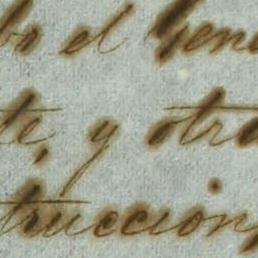 el Gene
te, y otra
trucción